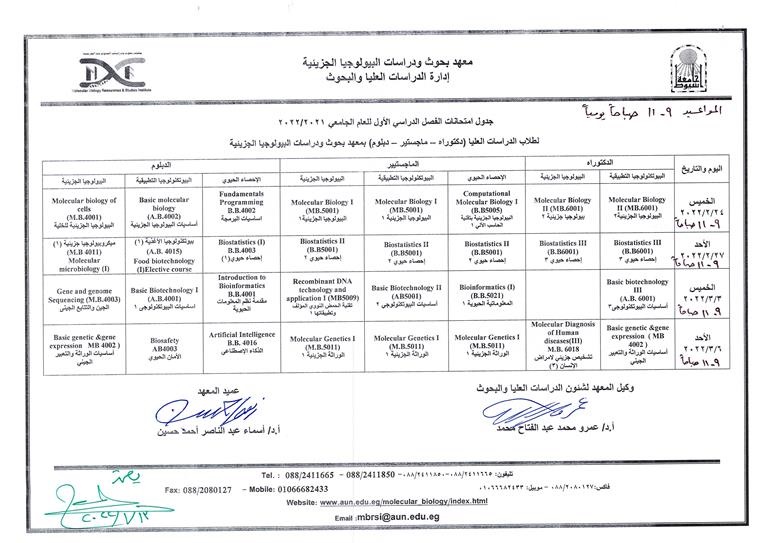 معهد بحوث ودراسات البيولوجيا الجزيئية
إدارة الدراسات العليا والبحوث
Molecular Biology Researches & Studies Institute
جامعة أسيوط
المواعيد ٩ - ١١ صباحاً يومياً
جدول امتحانات الفصل الدراسي الأول للعام الجامعي ٢٠٢٢/٢٠٢١
لطلاب الدراسات العليا (دكتوراه – ماجستير – دبلوم) بمعهد بحوث ودراسات البيولوجيا الجزيئية
اليوم والتاريخ
الدكتوراه
الماجستيير
الدبلوم
البيوتكنولوجيا التطبيقية
البيولوجيا الجزيئية
الإحصاء الحيوي
البيوتكنولوجيا التطبيقية
البيولوجيا الجزيئية
الإحصاء الحيوي
البيوتكنولوجيا التطبيقية
البيولوجيا الجزيئية
الخميس
٢٠٢٢/٢/٢٤
٩ - ١١ صباحاً
Molecular Biology II (MB.6001)
البيولوجيا الجزيئية٢
Molecular Biology II (MB.6001)
بيولوجيا جزيئية ٢
Computational Molecular Biology I (B.B5005)
البيولوجيا الجزيئية بأكنية الحاسب الآلي ١
Molecular Biology I (MB.5001)
البيولوجيا الجزيئية ١
Molecular Biology I (MB.5001)
البيولوجيا الجزيئية ١
Fundamentals Programming B.B.4002
اساسيات البرمجة
Basic molecular biology (A.B.4002)
أساسيات البيولوجيا الجزيئية
Molecular biology of cells (M.B.4001)
البيولوجيا الجزيئية للخلية
الأحد
٢٠٢٢/٢/٢٧
٩ - ١١ صباحاً
Biostatistics III (B.B6001)
إحصاء حيوي ٣
Biostatistics III (B.B6001)
إحصاء حيوي ٣
Biostatistics II (B.B5001)
إحصاء حيوي ٢
Biostatistics II (B.B5001)
إحصاء حيوي ٢
Biostatistics II (B.B5001)
إحصاء حيوي ٢
Biostatistics (I) B.B.4003
إحصاء حيوي(١)
بيوتكنولوجيا الأغذية (١)
(A.B. 4015)
Food biotechnology (I)Elective course
ميكروبيولوجيا جزيئية (١)
(M.B 4011)
Molecular microbiology (I)
الخميس
٢٠٢٢/٣/٣
٩ - ١١ صباحاً
Basic biotechnology III (A.B. 6001)
اساسيات البيوتكنولوجى٣
Bioinformatics (I) (B.B.5021)
المعلوماتية الحيوية ١
Basic Biotechnology II (AB5001)
اساسيات البيوتكنولوجي ٢
Recombinant DNA technology and application I (MB5009)
تقنية الحمض النووي المؤلف وتطبيقاتها ١
Introduction to Bioinformatics B.B.4001
مقدمة نظم المعلومات الحيوية
Basic Biotechnology I (A.B.4001)
اساسيات البيوتكنولوجى ١
Gene and genome Sequencing (M.B.4003)
الجين والتتابع الجينى
الأحد
٢٠٢٢/٣/٦
٩ - ١١ صباحاً
Basic genetic &gene expression ( MB 4002 )
أساسيات الوراثة والتعبير الجيني
Molecular Diagnosis of Human diseases(III) M.B. 6018
تشخيص جزيئي لامراض الإنسان (٣)
Molecular Genetics I (M.B.5011)
الوراثة الجزيئية ١
Molecular Genetics I (M.B.5011)
الوراثة الجزيئية ١
Molecular Genetics I (M.B.5011)
الوراثة الجزيئية ١
Artificial Intelligence B.B. 4016
الذكاء الإصطناعي
Biosafety AB4003
الأمان الحيوي
Basic genetic &gene expression MB 4002 )
أساسيات الوراثة والتعبير الجيني
وكيل المعهد لشئون الدراسات العليا والبحوث
أ.د/ عمرو محمد عبد الفتاح محمد
عميد المعهد
أ.د/ أسماء عبد الناصر أحمد حسين
يعتمد
Tel. : 088/2411665 – 088/2411850 تليفون: ٠٨٨/٢٤١١٦٦٥-٠٨٨/٢٤١١٨٥٠
Fax: 088/2080127 - Mobile: 01066682433 فاكس: ٠٨٨/٢٠٨٠١٢٧ - موبيل: ٠١٠٦٦٦٨٢٤٣٣
Website: www.aun.edu.eg/molecular_biology/index.html
Email :mbrsi@aun.edu.eg